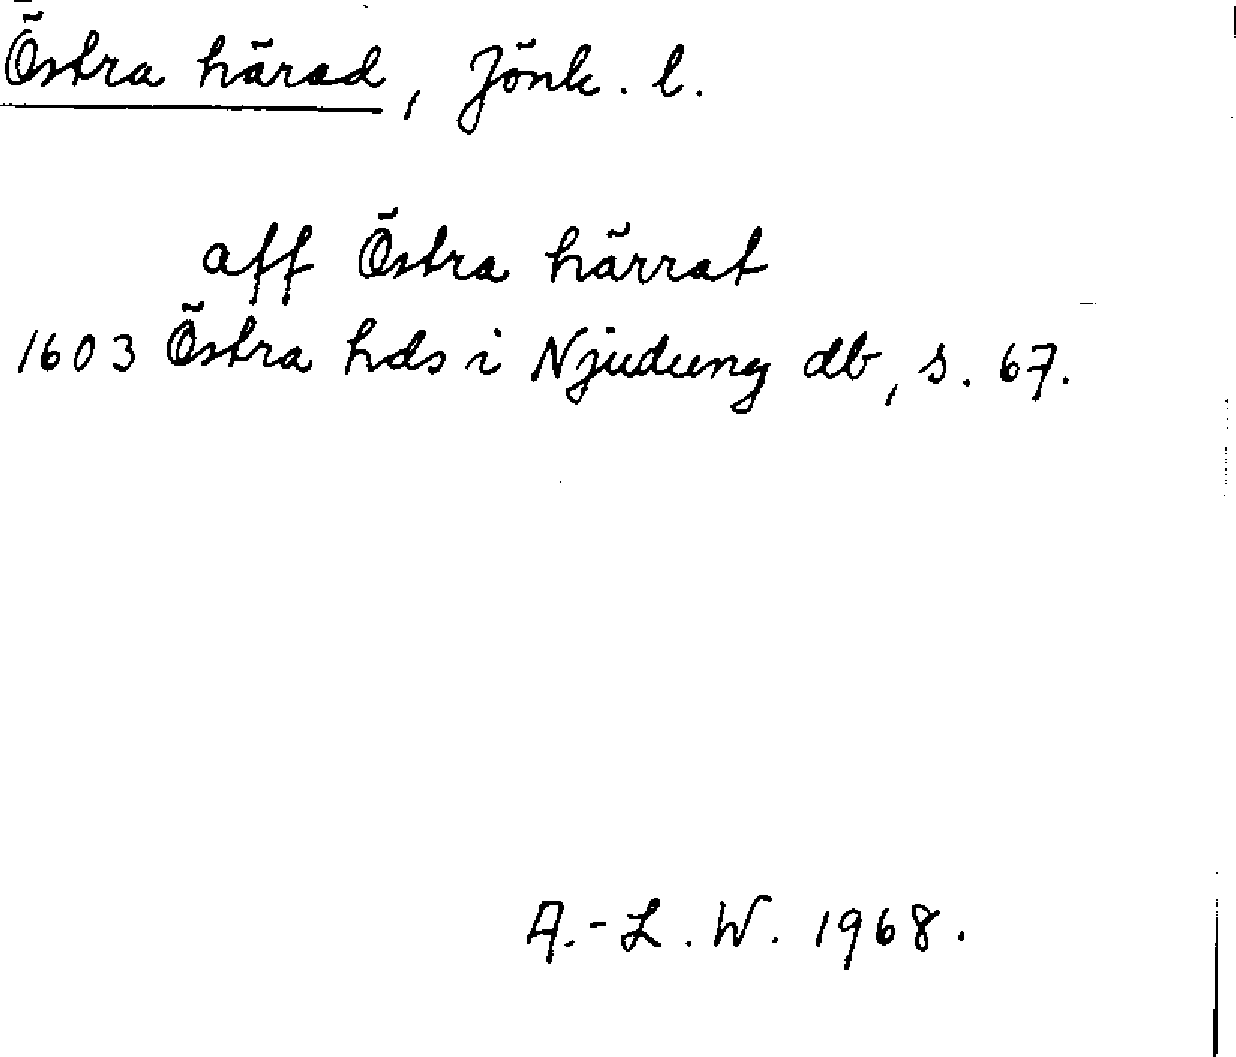 Östra härad, Jönk. l.
aff Östra härrat
1603 Östra hds i Njudung db, s. 67.
A.-L. W. 1968.